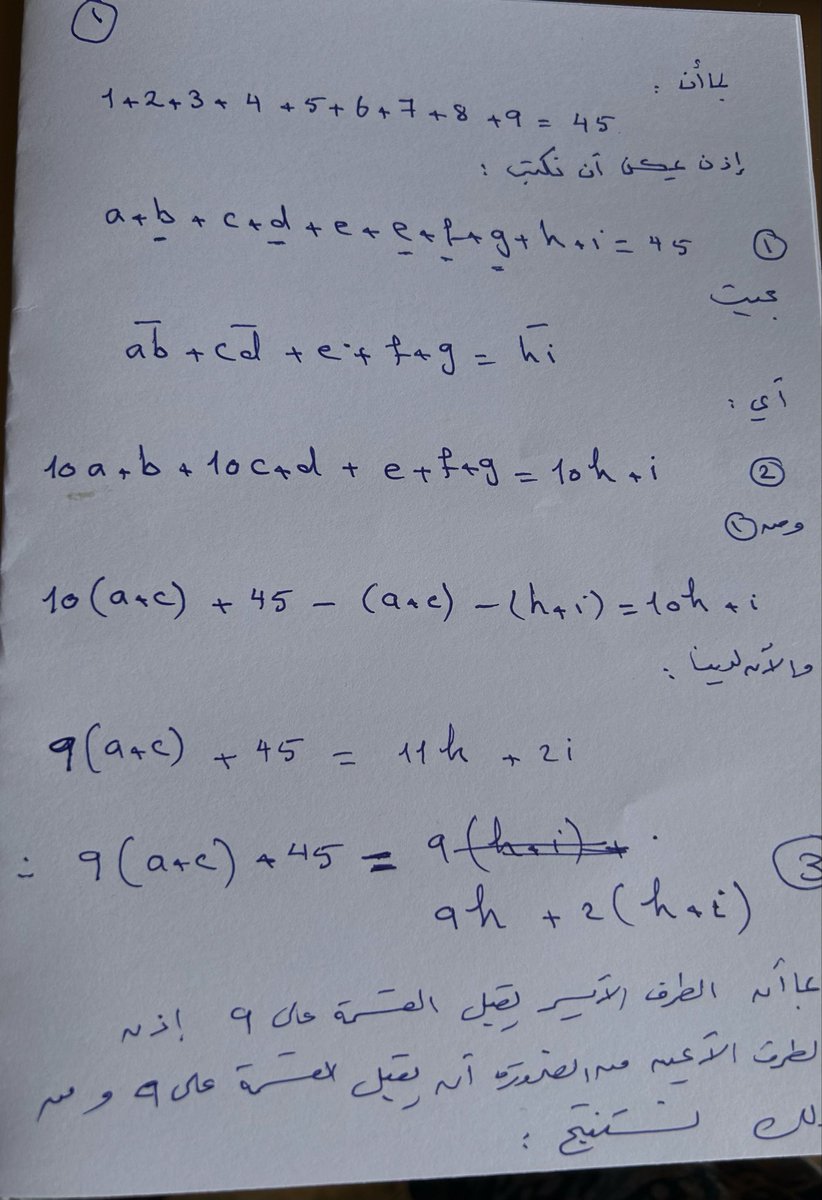 ①
بما أن :
1+2+3+4+5+6+7+8+9 = 45
إذن يمكن أن نكتب :
a+b+c+d+e+e+f+g+h+i = 45 ①
بحيث
a̅b̅ + c̅d̅ + e + f+g = h̅i̅
أي :
10a+b+10c+d + e+f+g = 10h+i ②
ومن ①
10(a+c) + 45 – (a+c) – (h+i) = 10h+i
والآن لدينا :
9(a+c) + 45 = 11h + 2i
9(a+c) + 45 = 9(h+i)+
9h + 2(h+i) ③
بما أن الطرف الأيسر يقبل القسمة على 9 إذن
لطرف الأيمن من الضرورة أن يقبل القسمة على 9 ومن
لك نستنتج :